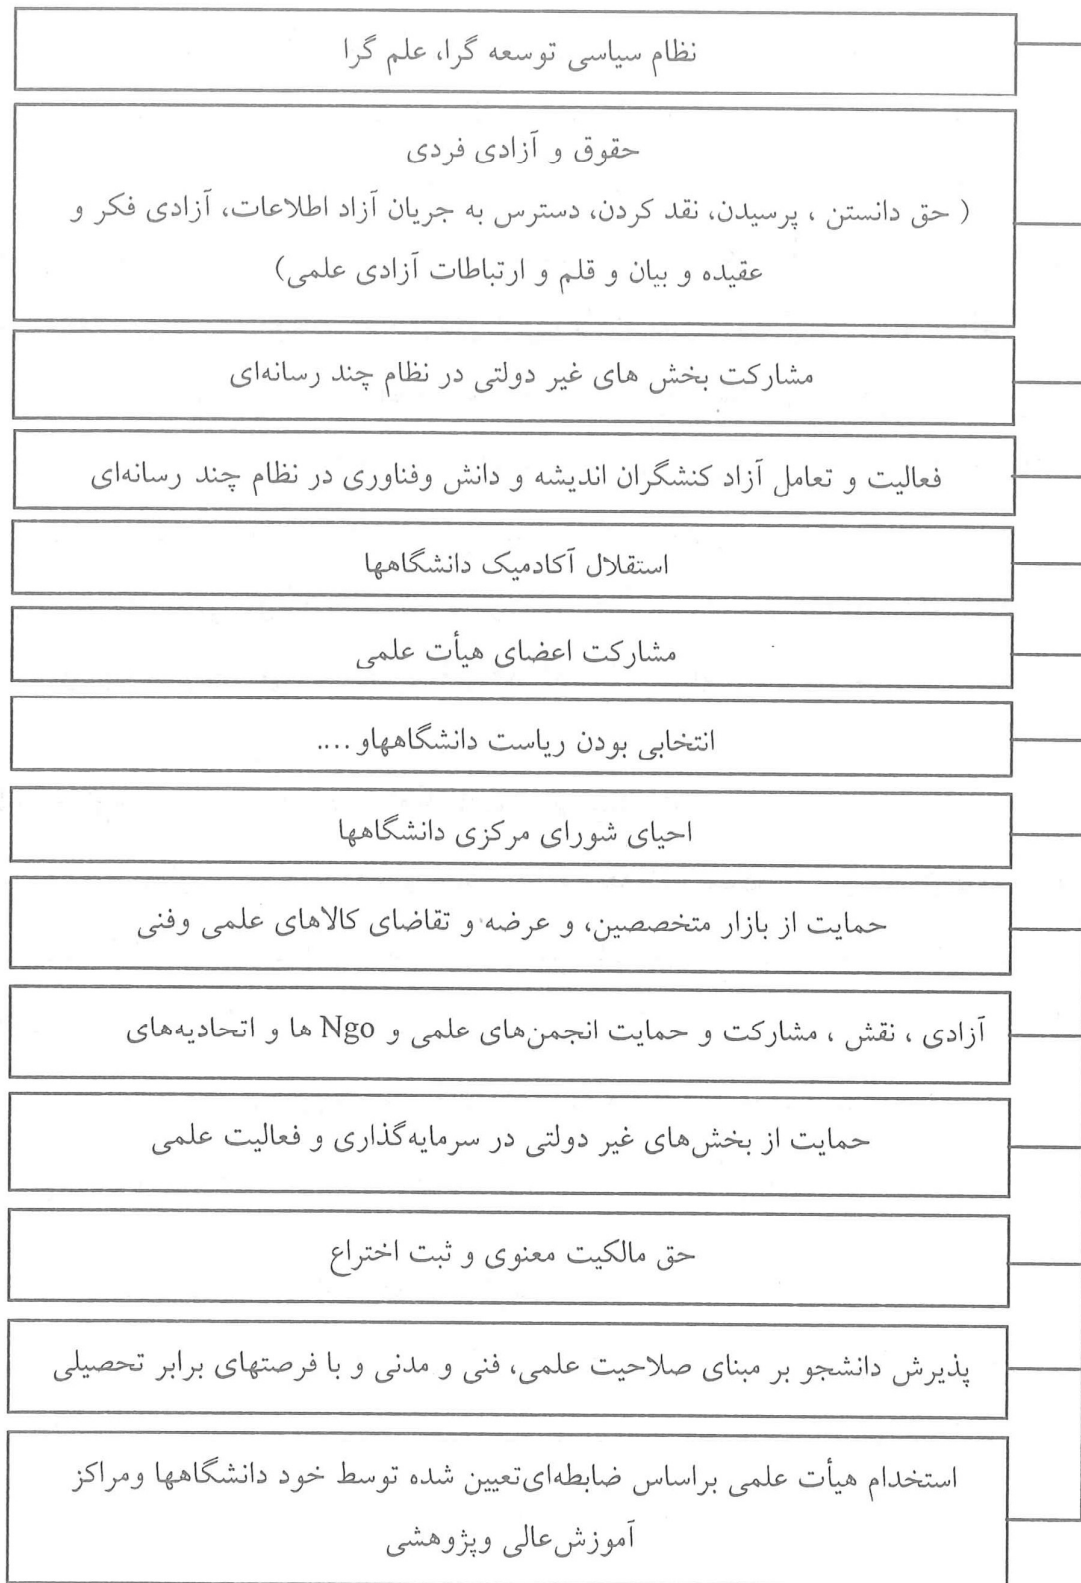 نظام سیاسی توسعه گرا، علم گرا
حقوق و آزادی فردی
( حق دانستن ، پرسیدن، نقد کردن، دسترس به جریان آزاد اطلاعات، آزادی فکر و
عقیده و بیان و قلم و ارتباطات آزادی علمی)
مشارکت بخش های غیر دولتی در نظام چند رسانه‌ای
فعالیت و تعامل آزاد کنشگران اندیشه و دانش وفناوری در نظام چند رسانه‌ای
استقلال آکادمیک دانشگاهها
مشارکت اعضای هیأت علمی
انتخابی بودن ریاست دانشگاههاو ....
احیای شورای مرکزی دانشگاهها
حمایت از بازار متخصصین، و عرضه و تقاضای کالاهای علمی وفنی
آزادی ، نقش ، مشارکت و حمایت انجمن‌های علمی و Ngo ها و اتحادیه‌های
حمایت از بخش‌های غیر دولتی در سرمایه‌گذاری و فعالیت علمی
حق مالکیت معنوی و ثبت اختراع
پذیرش دانشجو بر مبنای صلاحیت علمی، فنی و مدنی و با فرصتهای برابر تحصیلی
استخدام هیأت علمی براساس ضابطه‌ای‌تعیین شده توسط خود دانشگاهها ومراکز
آموزش‌عالی وپژوهشی